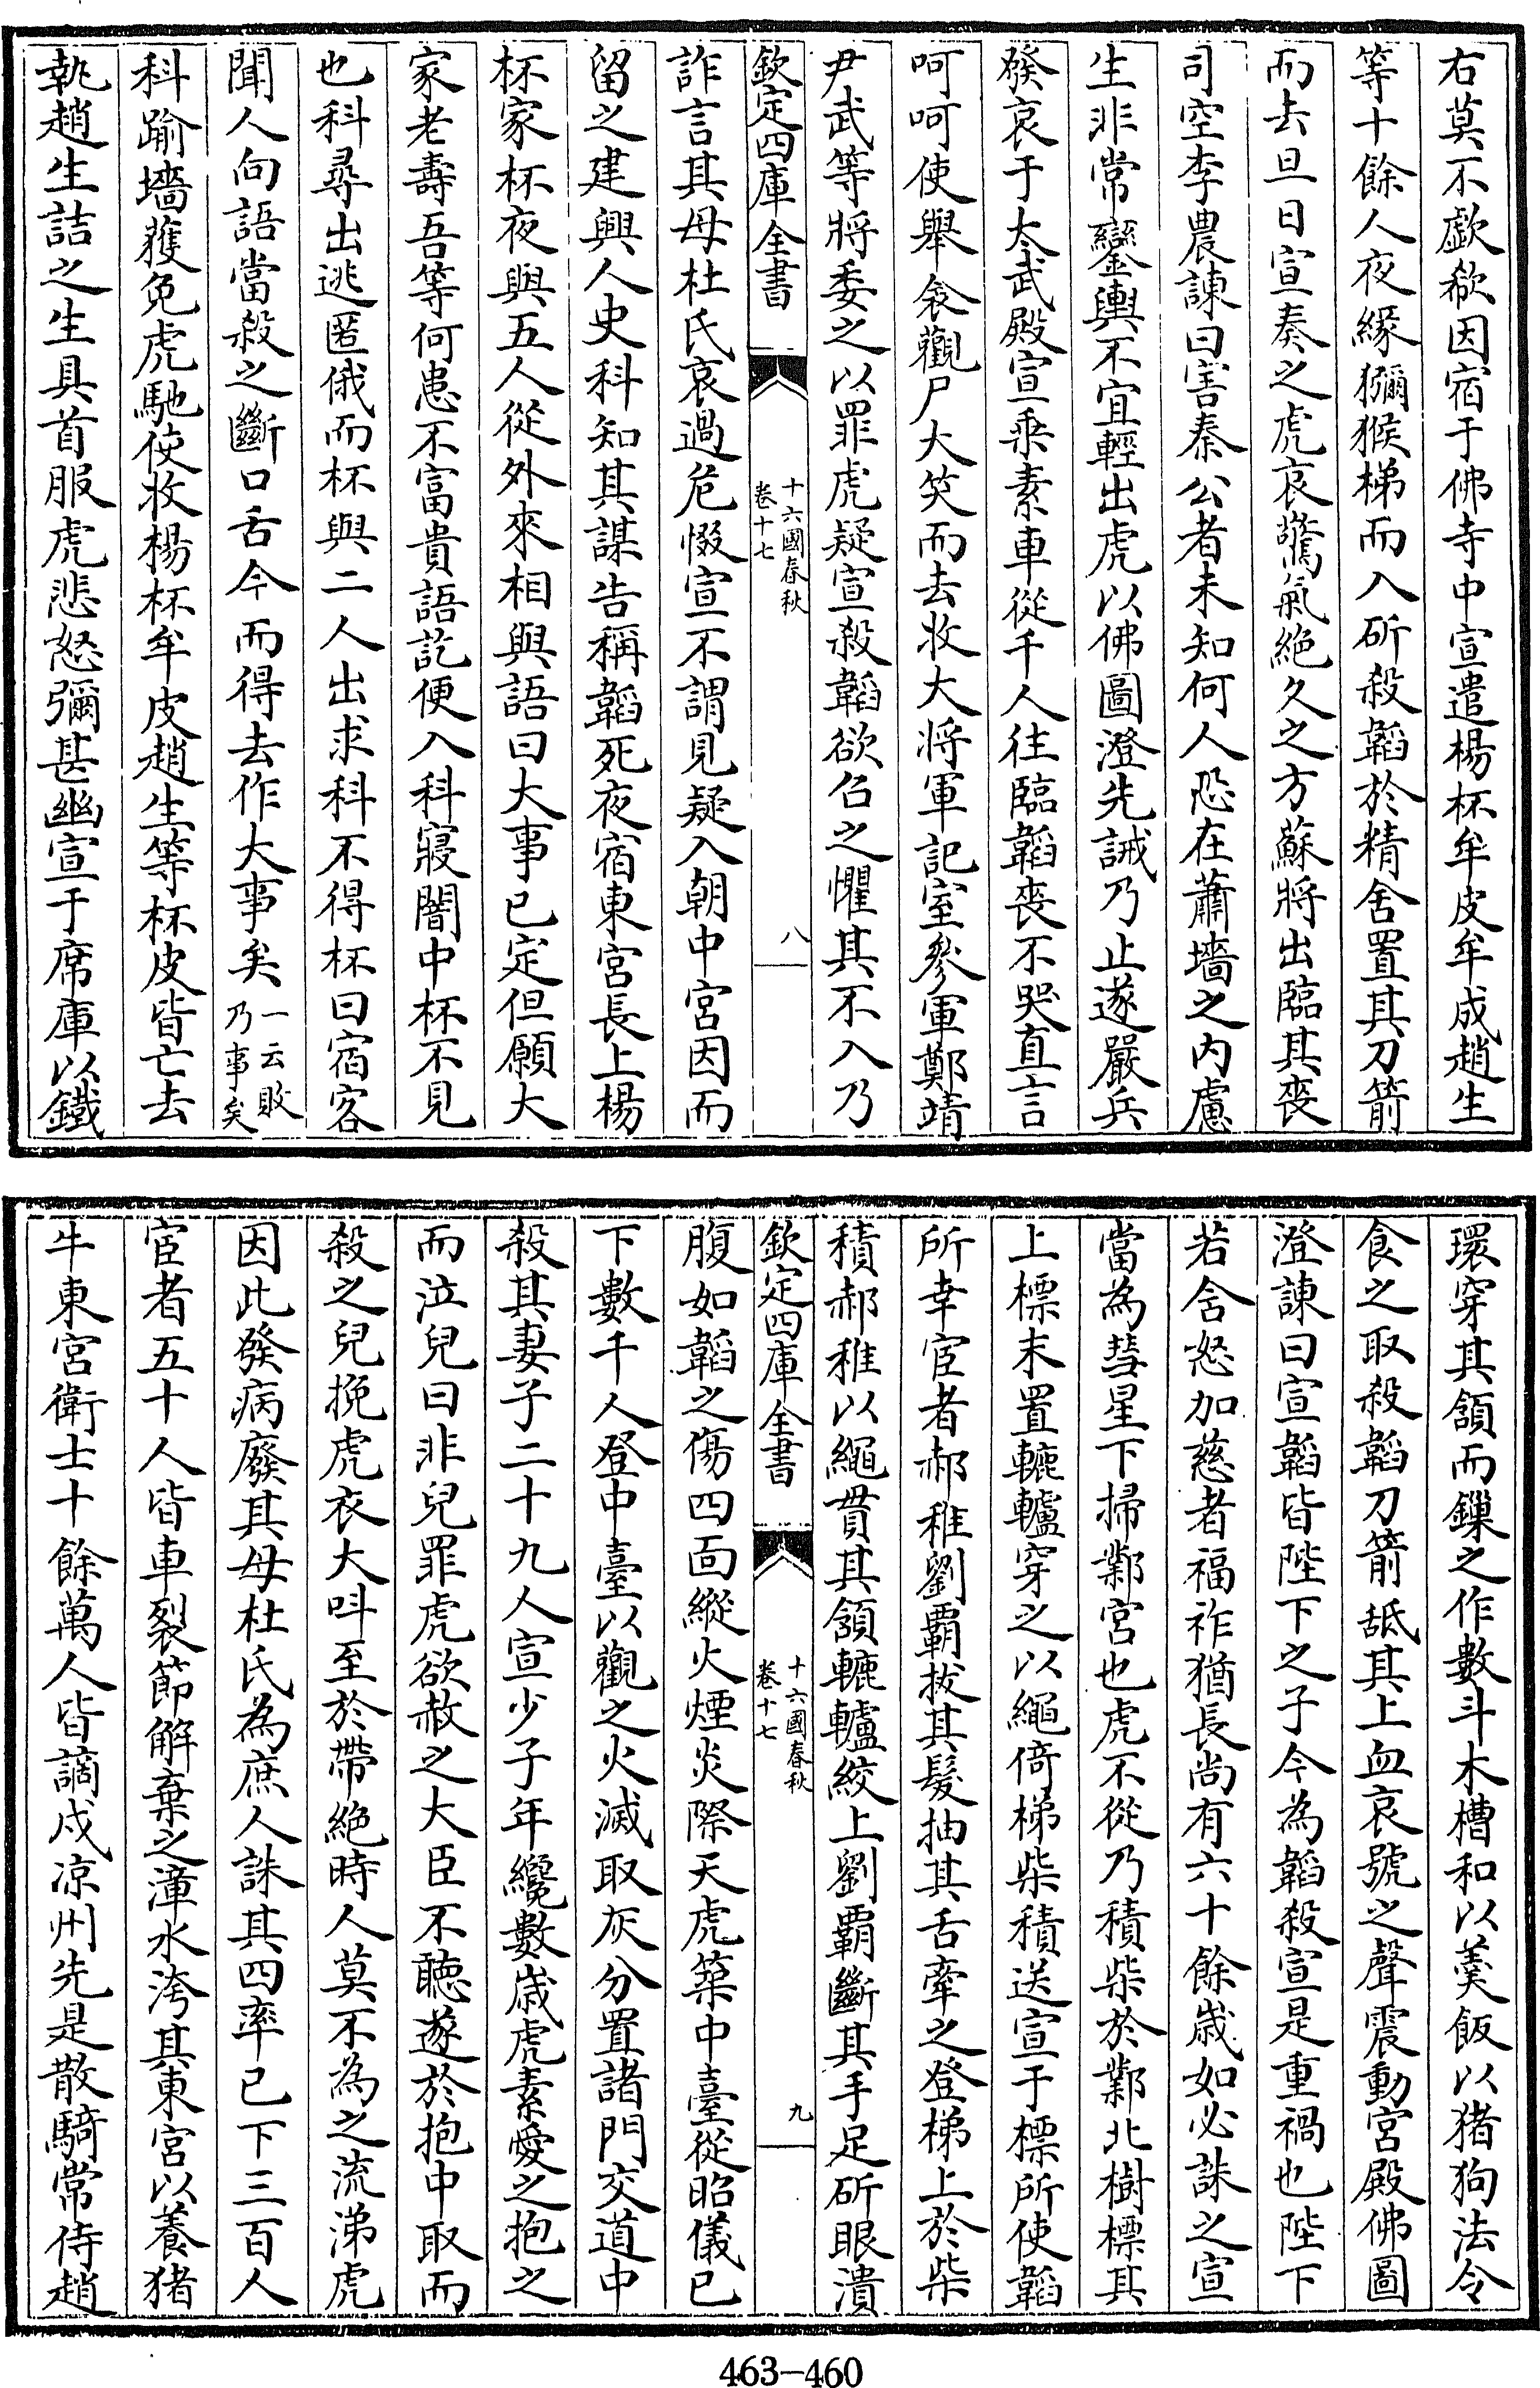 右莫不歔欷因宿于佛寺中宣遣楊杯牟皮牟成趙生
等十餘人夜緣獼猴梯而入斫殺韜於精舍置其刀箭
而去旦日宣奏之虎哀驚氣絶久之方蘇將出臨其喪
司空李農諫曰害秦公者未知何人恐在蕭墻之内慮
生非常鑾輿不宜輕出虎以佛圖澄先誡乃止遂嚴兵
發哀于太武殿宣乘素車從千人往臨韜喪不哭直言
呵呵使舉衾觀尸大笑而去收大將軍記室參軍鄭靖
尹武等將委之以罪虎疑宣殺韜欲召之懼其不入乃
欽定四庫全書
十六國春秋
卷十七
八
詐言其母杜氏哀過危惙宣不謂見疑入朝中宮因而
留之建興人史科知其謀告稱韜死夜宿東宮長上楊
杯家杯夜與五人從外來相與語曰大事已定但願大
家老壽吾等何患不富貴語訖便入科寢闇中杯不見
也科尋出逃匿俄而杯與二人出求科不得杯曰宿客
聞人向語當殺之斷口舌今而得去作大事矣一云敗乃事矣
科踰墻獲免虎馳使收楊杯牟皮趙生等杯皮皆亡去
執趙生詰之生具首服虎悲怒彌甚幽宣于席庫以鐵
環穿其頷而鏁之作數斗木槽和以羹飯以猪狗法令
食之取殺韜刀箭舐其上血哀號之聲震動宮殿佛圖
澄諫曰宣韜皆陛下之子今為韜殺宣是重禍也陛下
若含怒加慈者福祚猶長尚有六十餘歲如必誅之宣
當為彗星下掃鄴宮也虎不從乃積柴於鄴北樹標其
上標末置轆轤穿之以繩倚梯柴積送宣于標所使韜
所幸宦者郝稚劉霸拔其髮抽其舌牽之登梯上於柴
積郝稚以繩貫其頷轆轤絞上劉霸斷其手足斫眼潰
欽定四庫全書
十六國春秋
卷十七
九
腹如韜之傷四面縱火煙炎際天虎築中臺從昭儀已
下數千人登中臺以觀之火滅取灰分置諸門交道中
殺其妻子二十九人宣少子年纔數歲虎素愛之抱之
而泣兒曰非兒罪虎欲赦之大臣不聽遂於抱中取而
殺之兒挽虎衣大呌至於帶絶時人莫不為之流涕虎
因此發病廢其母杜氏為庶人誅其四率已下三百人
宦者五十人皆車裂節解棄之漳水洿其東宮以養猪
牛東宮衛士十餘萬人皆謫戍凉州先是散騎常侍趙
463-460